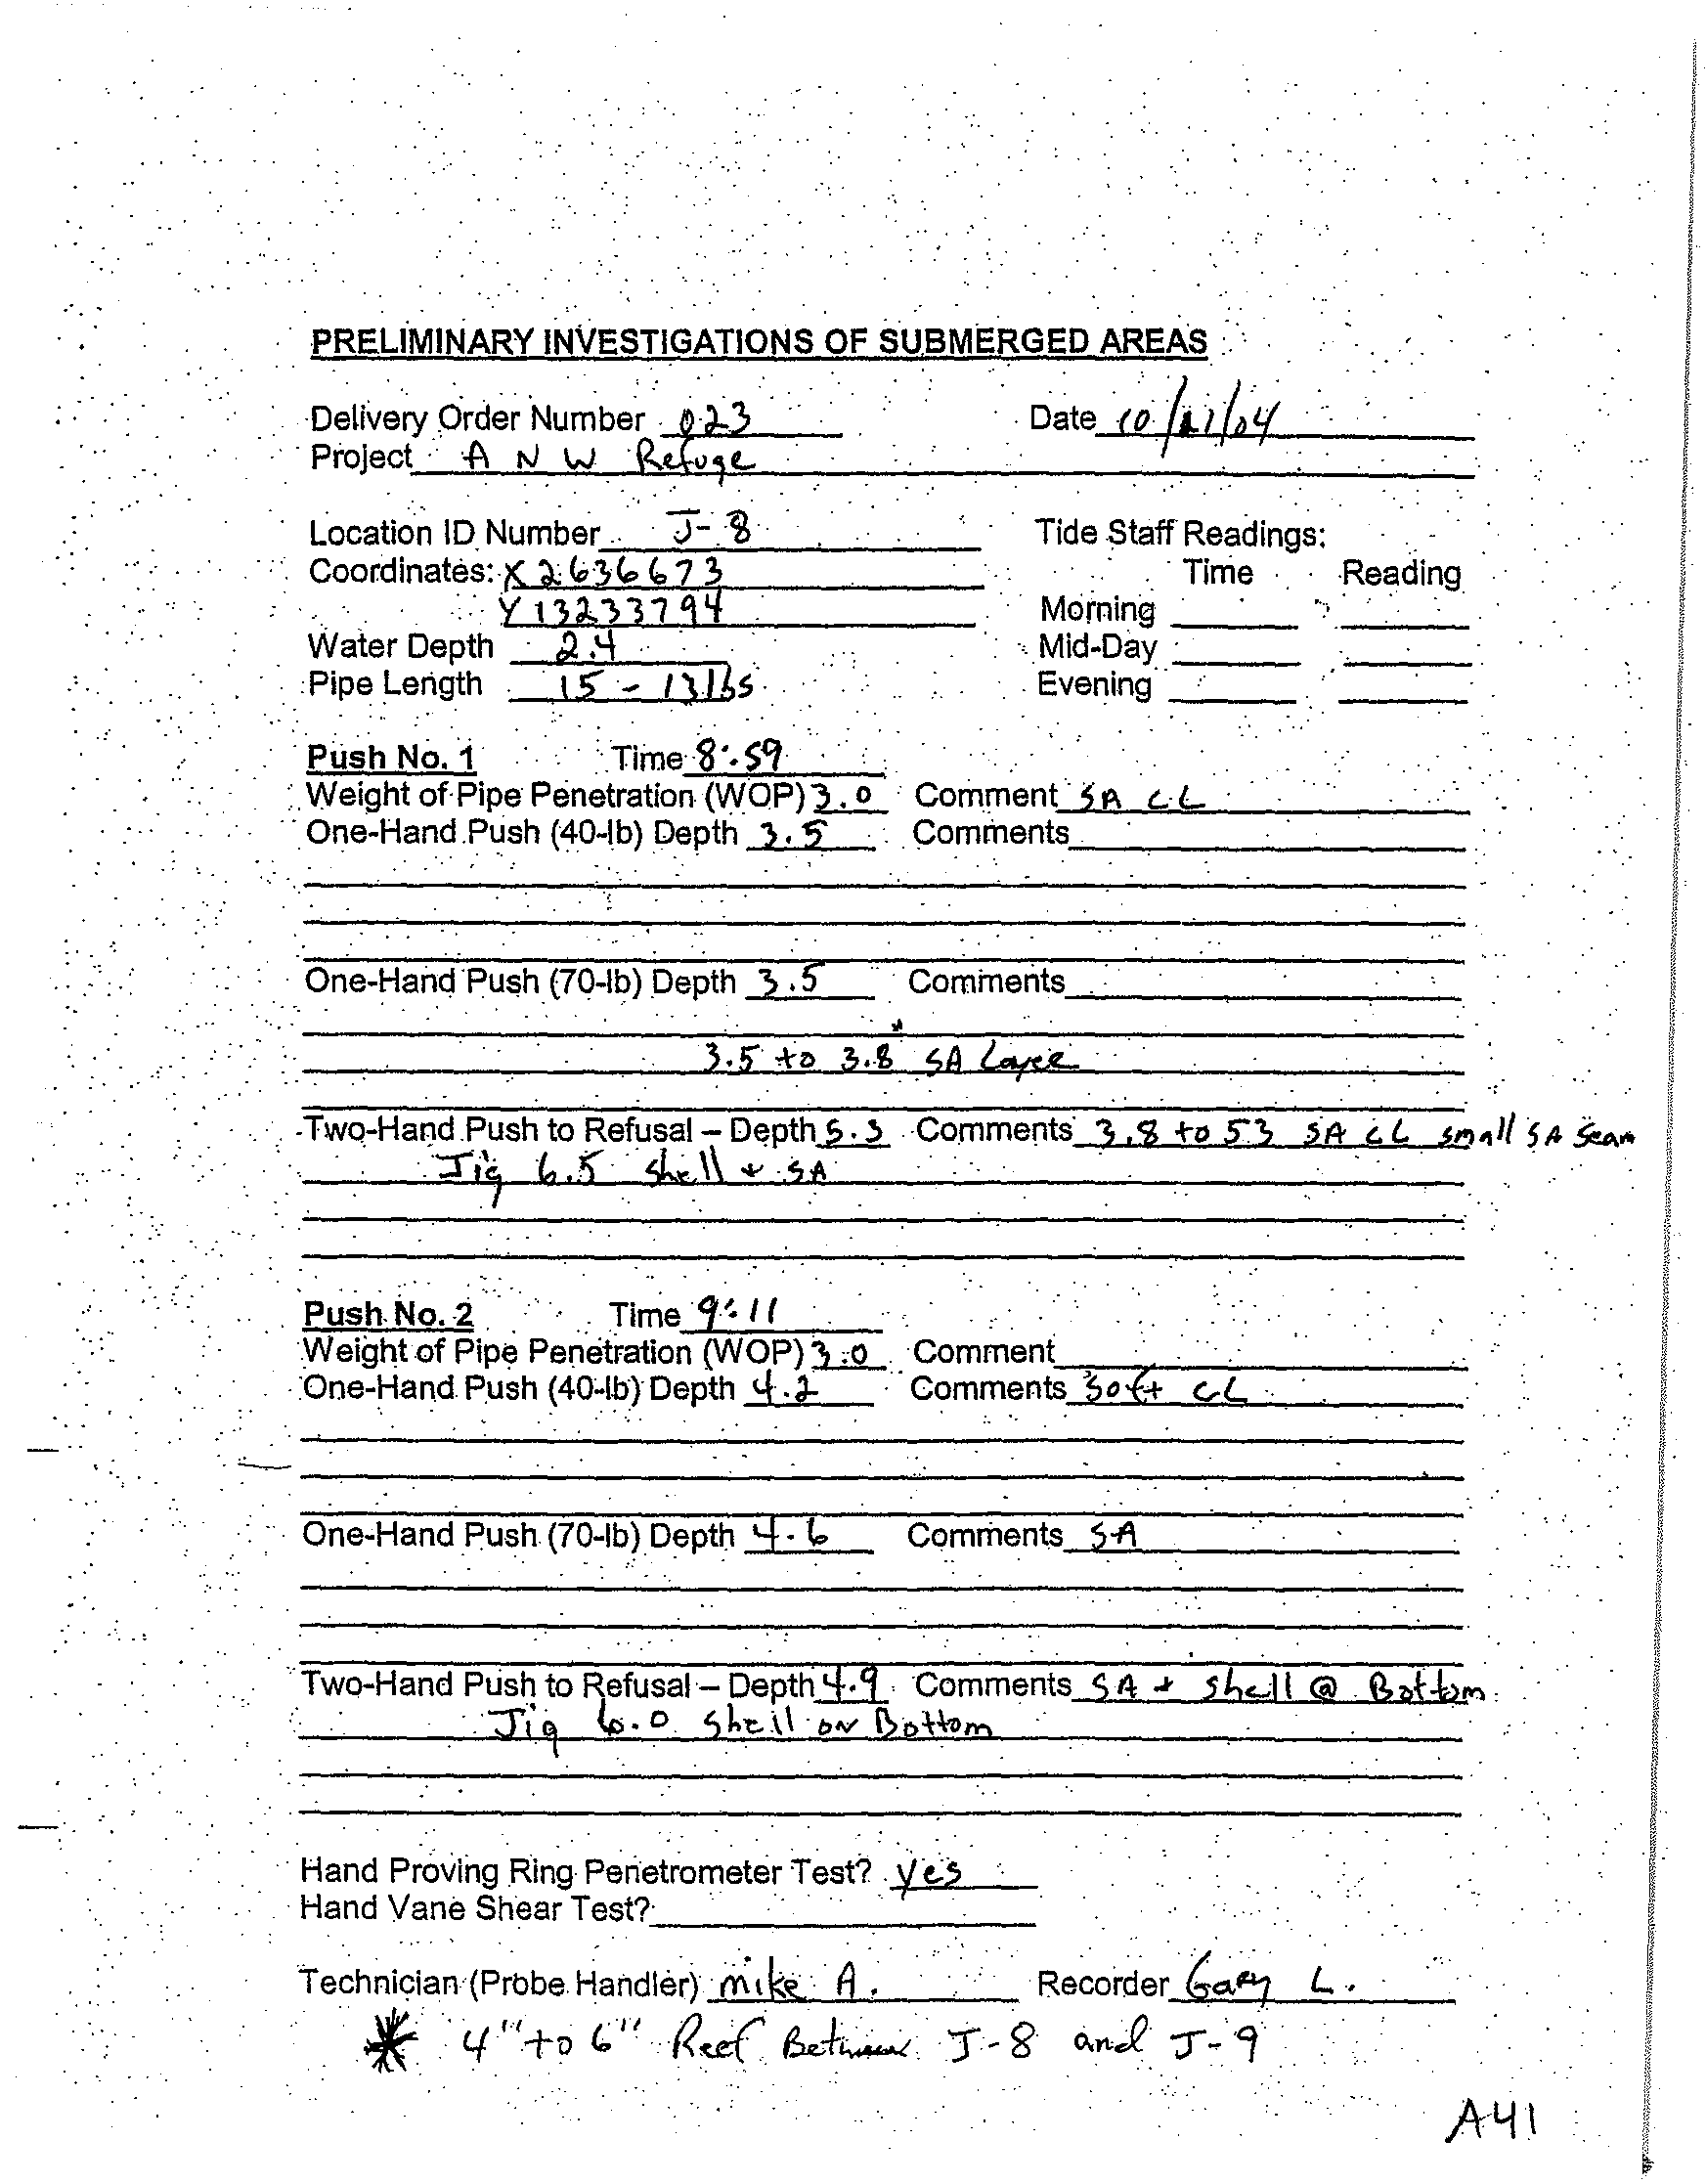 PRELIMINARY INVESTIGATIONS OF SUBMERGED AREAS
Delivery Order Number 023 Date 10/21/04
Project A N W Refuge
Location ID Number J-8 Tide Staff Readings:
Coordinates: X 2636673 Time Reading
Y 13233794 Morning
Water Depth 2.4 Mid-Day
Pipe Length 15 - 13lbs Evening
Push No. 1 Time 8:59
Weight of Pipe Penetration (WOP) 3.0 Comment SA CL
One-Hand Push (40-lb) Depth 3.5 Comments
One-Hand Push (70-lb) Depth 3.5 Comments
3.5 to 3.8 SA Layer
Two-Hand Push to Refusal – Depth 5.3 Comments 3.8 to 5.3 SA CL small SA Seam
Jig 6.5 shell + SA
Push No. 2 Time 9:11
Weight of Pipe Penetration (WOP) 3.0 Comment
One-Hand Push (40-lb) Depth 4.2 Comments Soft CL
One-Hand Push (70-lb) Depth 4.6 Comments SA
Two-Hand Push to Refusal – Depth 4.9 Comments SA + shell @ Bottom
Jig 6.0 Shell on Bottom
Hand Proving Ring Penetrometer Test? yes
Hand Vane Shear Test?
Technician (Probe Handler) mike A. Recorder Gary L.
* 4" to 6" Reef Between J-8 and J-9
A41